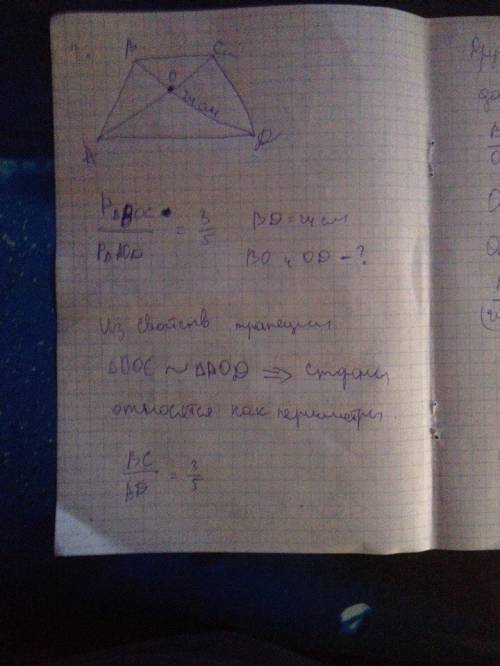 1.
B C
O
24 см
A D
P∆BOC / P∆AOD = 3/5 BD = 24 см
BO и OD - ?
Из свойств трапеции
∆BOC ~ ∆AOD ⇒ стороны
относятся как периметры.
BC / AD = 3/5